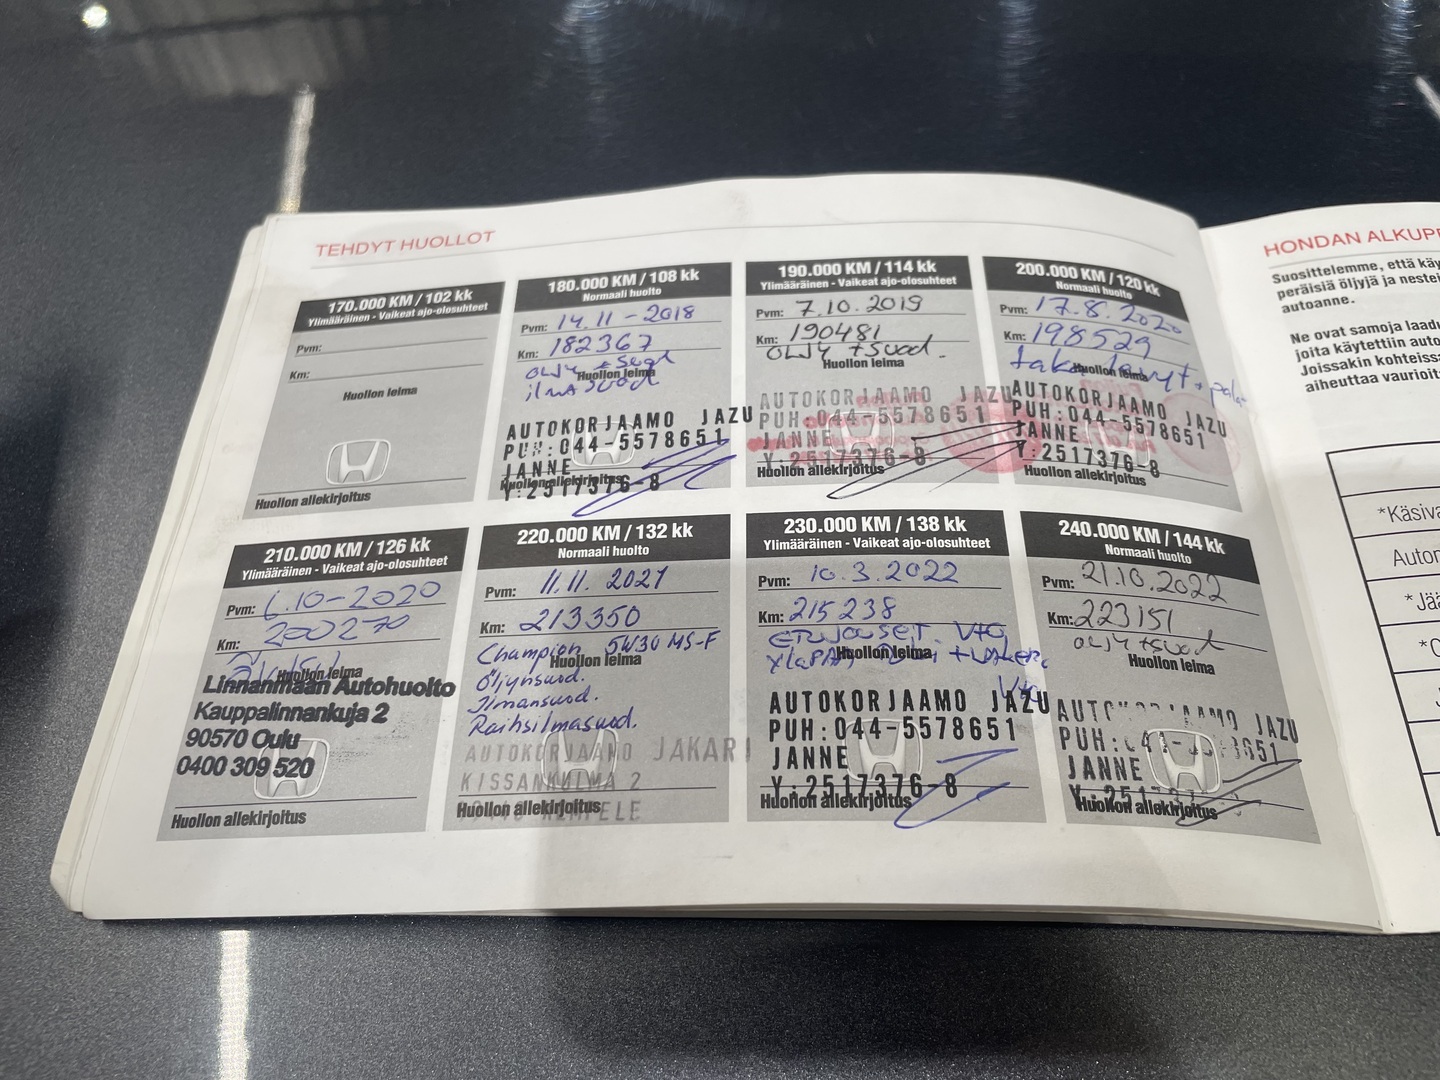 TEHDYT HUOLLOT
170.000 KM / 102 kk
Ylimääräinen - Vaikeat ajo-olosuhteet
Pvm:
Km:
Huollon leima
Huollon allekirjoitus
180.000 KM / 108 kk
Normaali huolto
Pvm: 14.11-2018
Km: 182367
ÖLJY +
Huollon leima
ilma suod
AUTOKORJAAMO JAZU
PUH:044-5578651
JANNE
Huollon allekirjoitus
Y:2517376-8
190.000 KM / 114 kk
Ylimääräinen - Vaikeat ajo-olosuhteet
Pvm: 7.10.2019
Km: 190481
ÖLJY +suod.
Huollon leima
AUTOKORJAAMO JAZU
PUH:044-5578651
JANNE
Y:2517376-8
Huollon allekirjoitus
200.000 KM / 120 kk
Normaali huolto
Pvm: 17.8.2020
Km: 198529
Huollon leima
AUTOKORJAAMO JAZU
PUH:044-5578651
JANNE
Y:2517376-8
Huollon allekirjoitus
210.000 KM / 126 kk
Ylimääräinen - Vaikeat ajo-olosuhteet
Pvm: 6.10-2020
Km: 200270
Huollon leima
Linnanmaan Autohuolto
Kauppalinnankuja 2
90570 Oulu
0400 309 520
Huollon allekirjoitus
220.000 KM / 132 kk
Normaali huolto
Pvm: 11.11.2021
Km: 213350
Champion 5W30 MS-F
Huollon leima
Öljynsuod.
Ilmansuod.
Raitisilmasuod.
AUTOKORJAAMO JAKARI
KISSANKULMA 2
KEMPELE
Huollon allekirjoitus
230.000 KM / 138 kk
Ylimääräinen - Vaikeat ajo-olosuhteet
Pvm: 10.3.2022
Km: 215238
ETUJOUSET. V+O
Huollon leima
AUTOKORJAAMO JAZU
PUH:044-5578651
JANNE
Y:2517376-8
Huollon allekirjoitus
240.000 KM / 144 kk
Normaali huolto
Pvm: 21.10.2022
Km: 223151
ÖLJY +suod
Huollon leima
AUTOKORJAAMO JAZU
PUH:044-5578651
JANNE
Huollon allekirjoitus
HONDAN ALKUP
Suosittelemme, että
peräisiä öljyjä ja
autoanne.
Ne ovat samoja
joita käytettiin
Joissakin
aiheuttaa